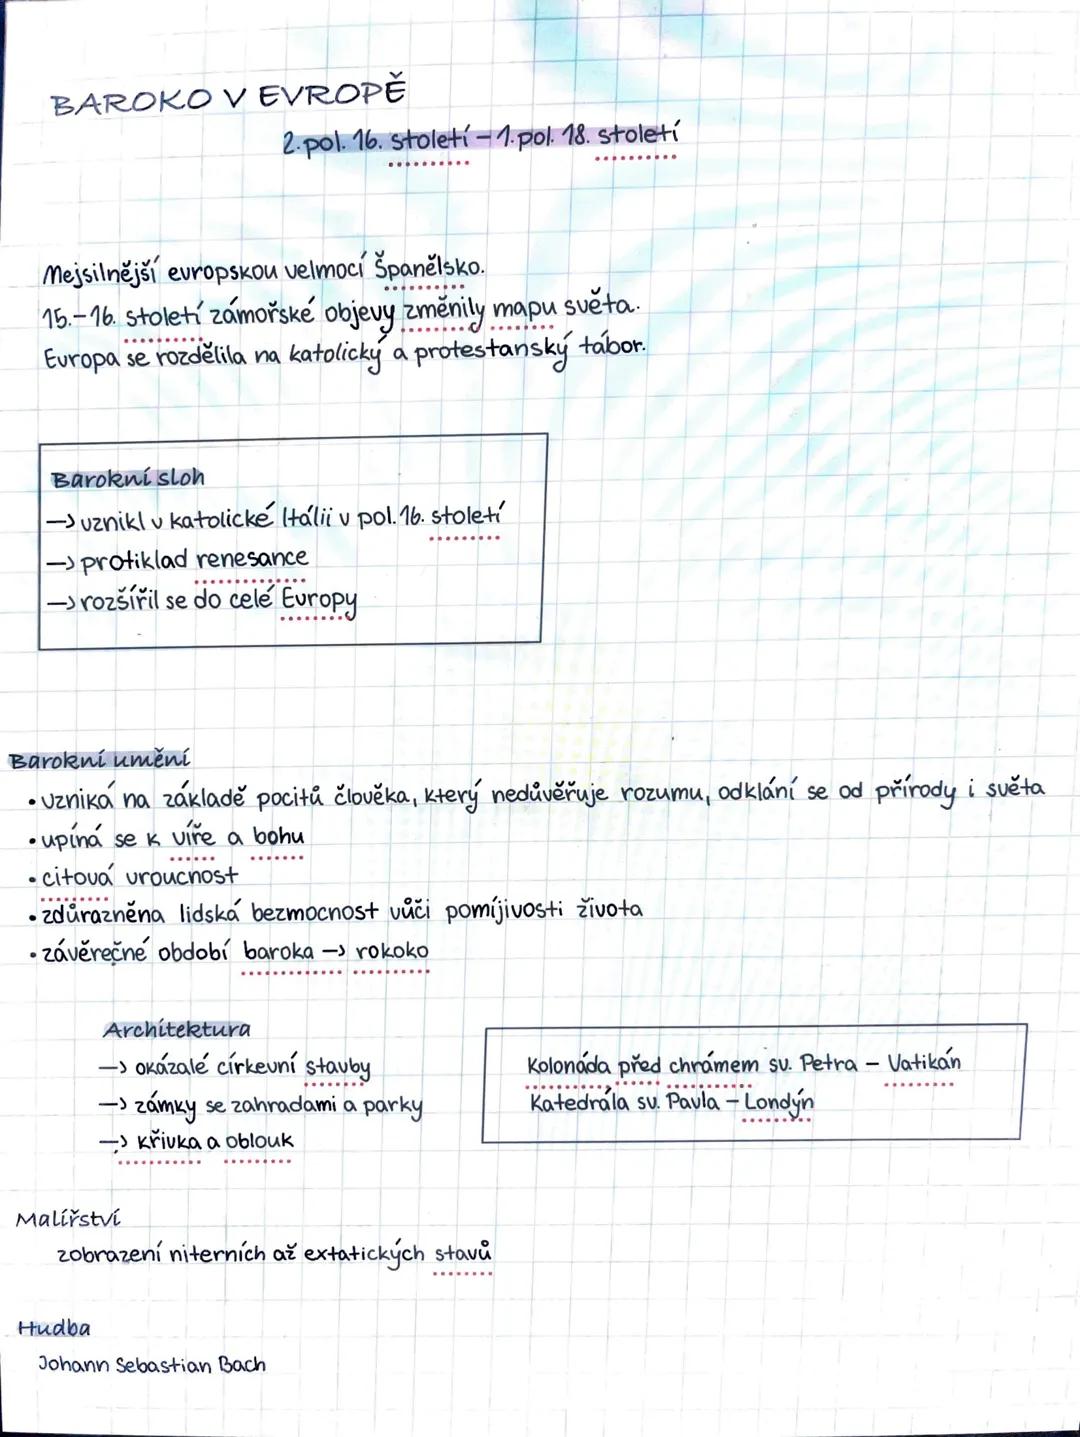 BAROKO V EVROPĚ
2. pol. 16. století – 1. pol. 18. století
Mejsilnější evropskou velmocí Španělsko.
15.–16. století zámořské objevy změnily mapu světa.
Evropa se rozdělila na katolický a protestanský tábor.
Barokní sloh
→ vznikl v katolické Itálii v pol. 16. století
→ protiklad renesance
→ rozšířil se do celé Evropy
Barokní umění
• vzniká na základě pocitů člověka, který nedůvěřuje rozumu, odklání se od přírody i světa
• upíná se k víře a bohu
• citová vroucnost
• zdůrazněna lidská bezmocnost vůči pomíjivosti života
• závěrečné období baroka → rokoko
Architektura
→ okázalé církevní stavby
→ zámky se zahradami a parky
→ křivka a oblouk
Kolonáda před chrámem sv. Petra – Vatikán
Katedrála sv. Pavla – Londýn
Malířství
zobrazení niterních až extatických stavů
Hudba
Johann Sebastian Bach